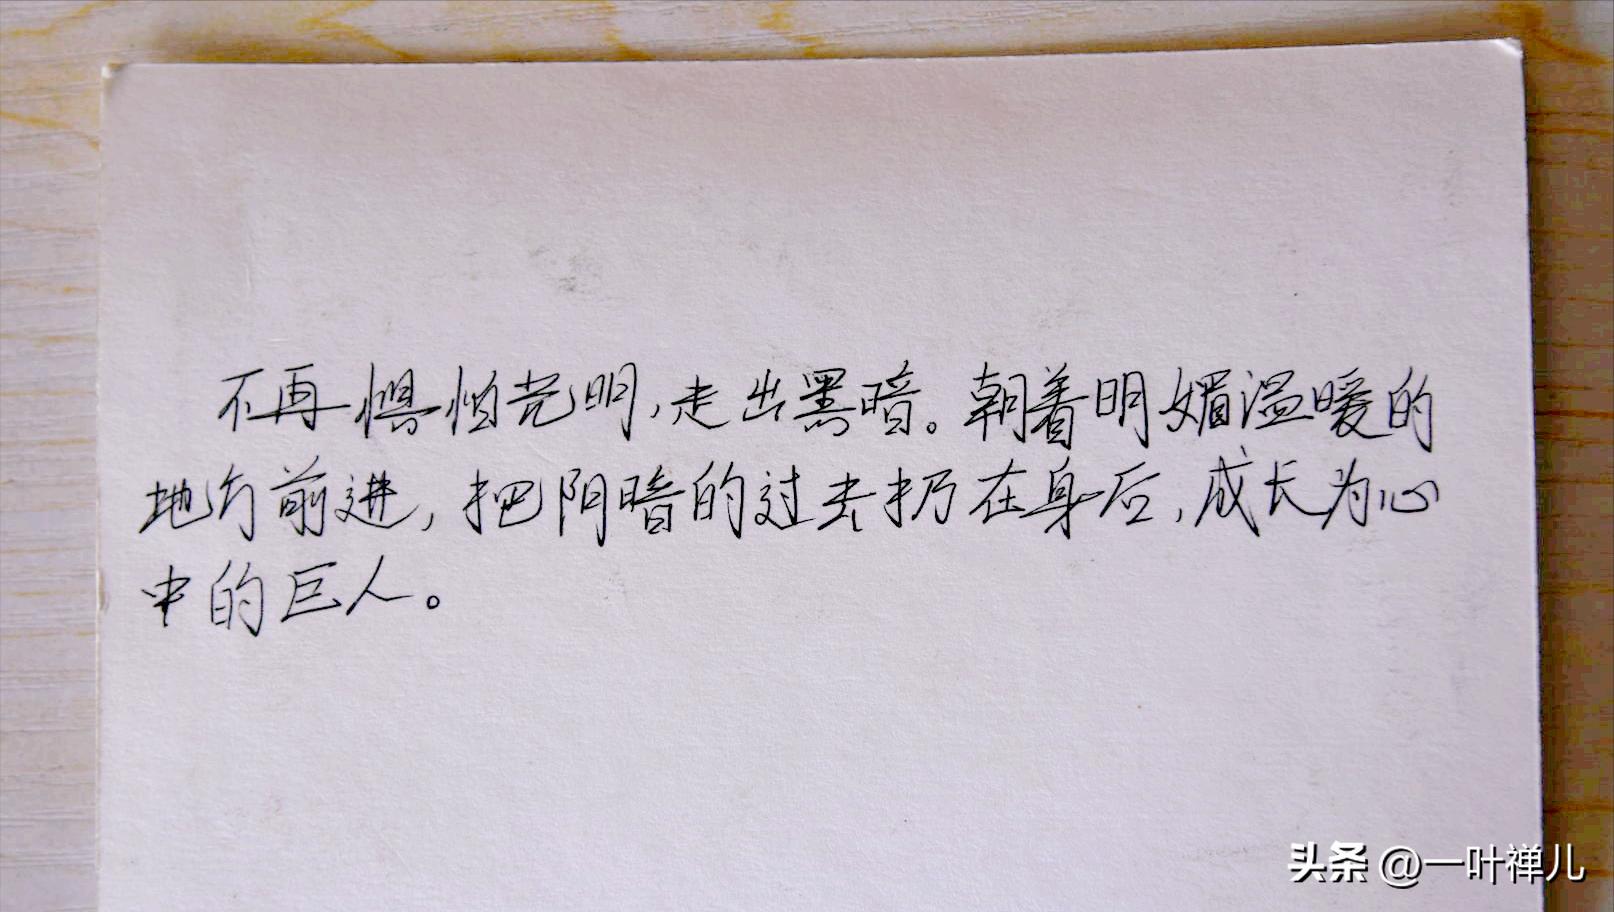 不再惧怕光明,走出黑暗。朝着明媚温暖的
地方前进,把阴暗的过去扔在身后,成长为心
中的巨人。
头条 @一叶禅儿